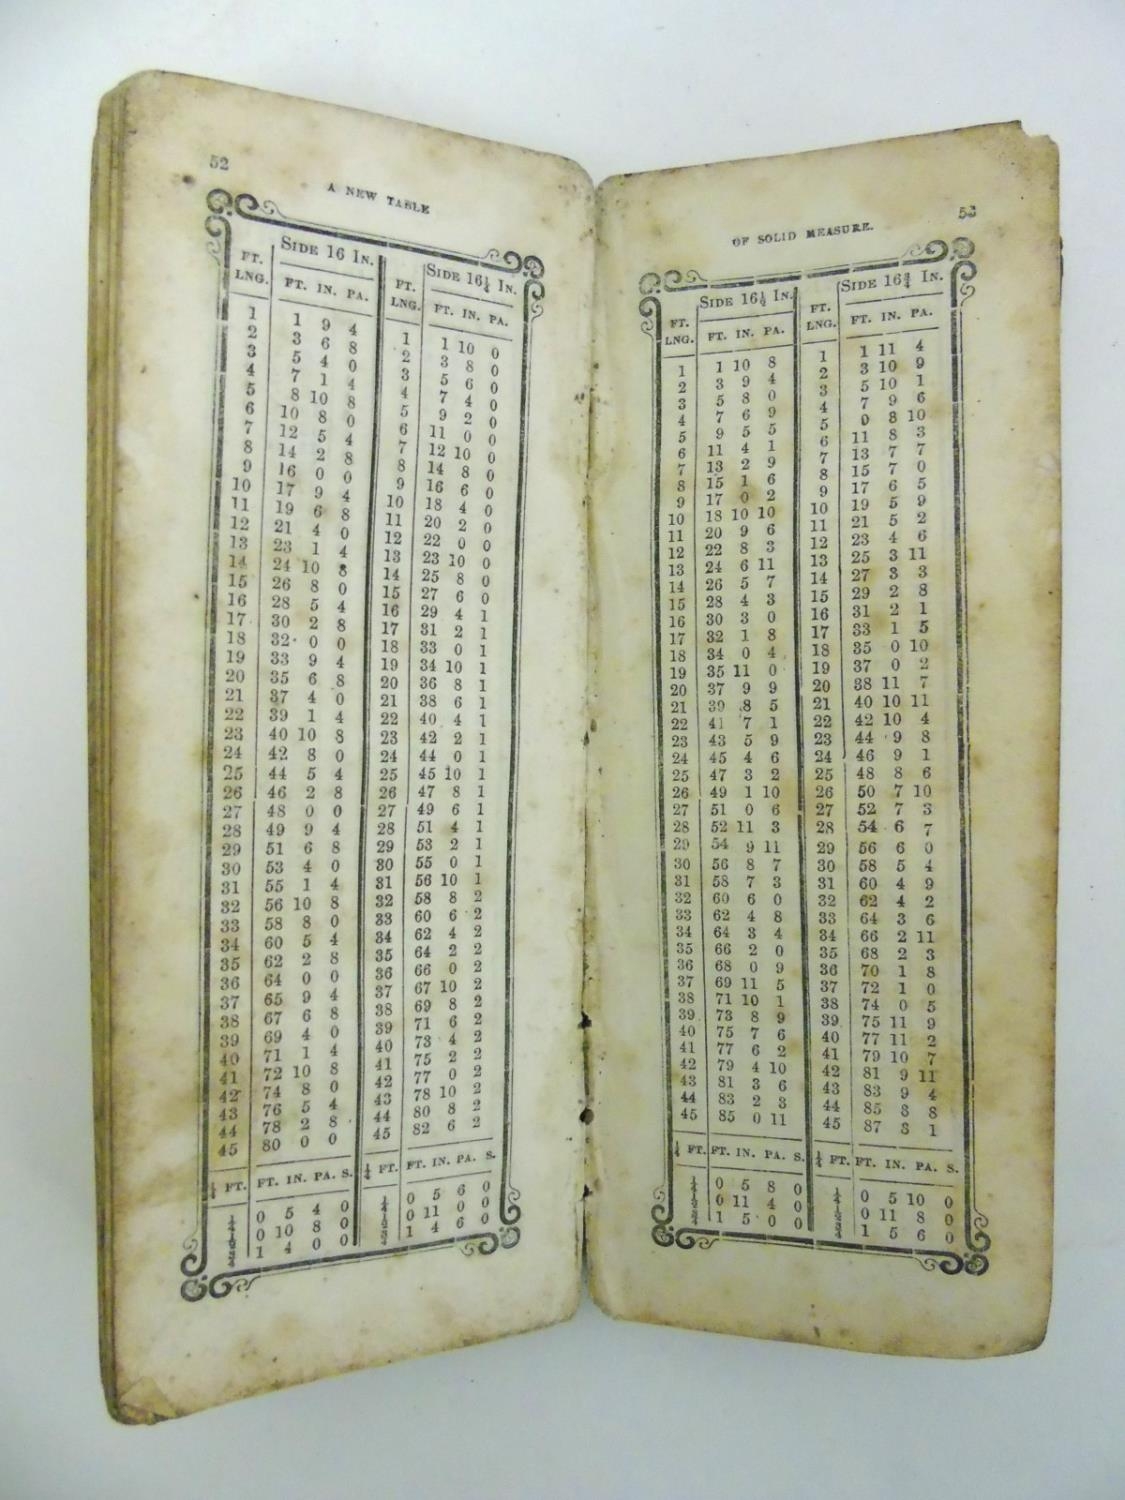 52
A NEW TABLE
FT. LNG. SIDE 16 IN. FT. LNG. SIDE 16¼ IN.
FT. IN. PA. FT. IN. PA.
1 1 9 4 1 1 10 0
2 3 6 8 2 3 8 0
3 5 4 0 3 5 6 0
4 7 1 4 4 7 4 0
5 8 10 8 5 9 2 0
6 10 8 0 6 11 0 0
7 12 5 4 7 12 10 0
8 14 2 8 8 14 8 0
9 16 0 0 9 16 6 0
10 17 9 4 10 18 4 0
11 19 6 8 11 20 2 0
12 21 4 0 12 22 0 0
13 23 1 4 13 23 10 0
14 24 10 8 14 25 8 0
15 26 8 0 15 27 6 0
16 28 5 4 16 29 4 1
17 30 2 8 17 31 2 1
18 32 0 0 18 33 0 1
19 33 9 4 19 34 10 1
20 35 6 8 20 36 8 1
21 37 4 0 21 38 6 1
22 39 1 4 22 40 4 1
23 40 10 8 23 42 2 1
24 42 8 0 24 44 0 1
25 44 5 4 25 45 10 1
26 46 2 8 26 47 8 1
27 48 0 0 27 49 6 1
28 49 9 4 28 51 4 1
29 51 6 8 29 53 2 1
30 53 4 0 30 55 0 1
31 55 1 4 31 56 10 1
32 56 10 8 32 58 8 2
33 58 8 0 33 60 6 2
34 60 5 4 34 62 4 2
35 62 2 8 35 64 2 2
36 64 0 0 36 66 0 2
37 65 9 4 37 67 10 2
38 67 6 8 38 69 8 2
39 69 4 0 39 71 6 2
40 71 1 4 40 73 4 2
41 72 10 8 41 75 2 2
42 74 8 0 42 77 0 2
43 76 5 4 43 78 10 2
44 78 2 8 44 80 8 2
45 80 0 0 45 82 6 2
¼ FT. FT. IN. PA. S. ¼ FT. FT. IN. PA. S.
¼ 0 5 4 0 ¼ 0 5 6 0
½ 0 10 8 0 ½ 0 11 0 0
¾ 1 4 0 0 ¾ 1 4 6 0
53
OF SOLID MEASURE.
FT. LNG. SIDE 16½ IN. FT. LNG. SIDE 16¾ IN.
FT. IN. PA. FT. IN. PA.
1 1 10 8 1 1 11 4
2 3 9 4 2 3 10 9
3 5 8 0 3 5 10 1
4 7 6 9 4 7 9 6
5 9 5 5 5 0 8 10
6 11 4 1 6 11 8 3
7 13 2 9 7 13 7 7
8 15 1 6 8 15 7 0
9 17 0 2 9 17 6 5
10 18 10 10 10 19 5 9
11 20 9 6 11 21 5 2
12 22 8 3 12 23 4 6
13 24 6 11 13 25 3 11
14 26 5 7 14 27 3 3
15 28 4 3 15 29 2 8
16 30 3 0 16 31 2 1
17 32 1 8 17 33 1 5
18 34 0 4 18 35 0 10
19 35 11 0 19 37 0 2
20 37 9 9 20 38 11 7
21 39 8 5 21 40 10 11
22 41 7 1 22 42 10 4
23 43 5 9 23 44 9 8
24 45 4 6 24 46 9 1
25 47 3 2 25 48 8 6
26 49 1 10 26 50 7 10
27 51 0 6 27 52 7 3
28 52 11 3 28 54 6 7
29 54 9 11 29 56 6 0
30 56 8 7 30 58 5 4
31 58 7 3 31 60 4 9
32 60 6 0 32 62 4 2
33 62 4 8 33 64 3 6
34 64 3 4 34 66 2 11
35 66 2 0 35 68 2 3
36 68 0 9 36 70 1 8
37 69 11 5 37 72 1 0
38 71 10 1 38 74 0 5
39 73 8 9 39 75 11 9
40 75 7 6 40 77 11 2
41 77 6 2 41 79 10 7
42 79 4 10 42 81 9 11
43 81 3 6 43 83 9 4
44 83 2 3 44 85 8 8
45 85 0 11 45 87 8 1
¼ FT. FT. IN. PA. S. ¼ FT. FT. IN. PA. S.
¼ 0 5 8 0 ¼ 0 5 10 0
½ 0 11 4 0 ½ 0 11 8 0
¾ 1 5 0 0 ¾ 1 5 6 0